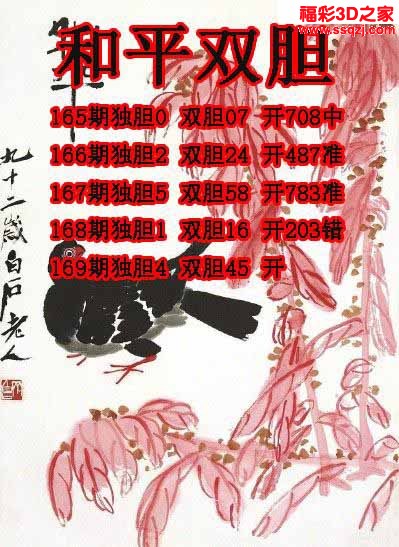 福彩3D之家
www.ssqzj.com
和平
和平双胆
165期独胆0 双胆07 开708中
166期独胆2 双胆24 开487准
167期独胆5 双胆58 开783准
168期独胆1 双胆16 开203错
169期独胆4 双胆45 开
九十二岁白石老人